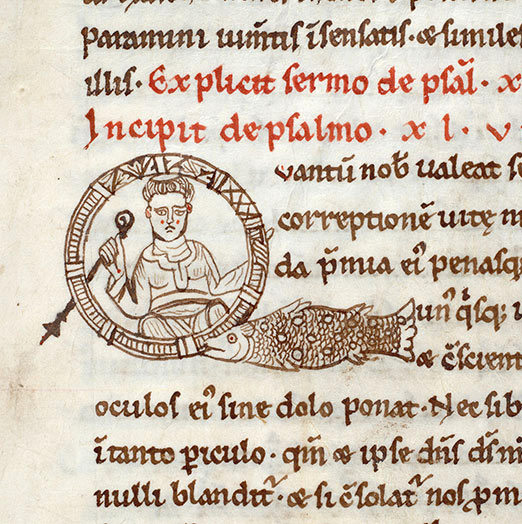 paramini iumtis īsensatis · & similes
illis · Explicit sermo de psal̄ · x
Incipit de psalmo · x l · v
Quantū nob̄ ualeat se
correptionē uitę n
da p̄mia ei' penasq
unꝰ q̄sq;
& c̄scient
oculos ei' sine dolo ponat · Nec sib
ītanto piculo · qm̄ & ipse dn̄s ds̄ n
nulli blandit᷑ · & si c̄solat᷑ nos p̄m